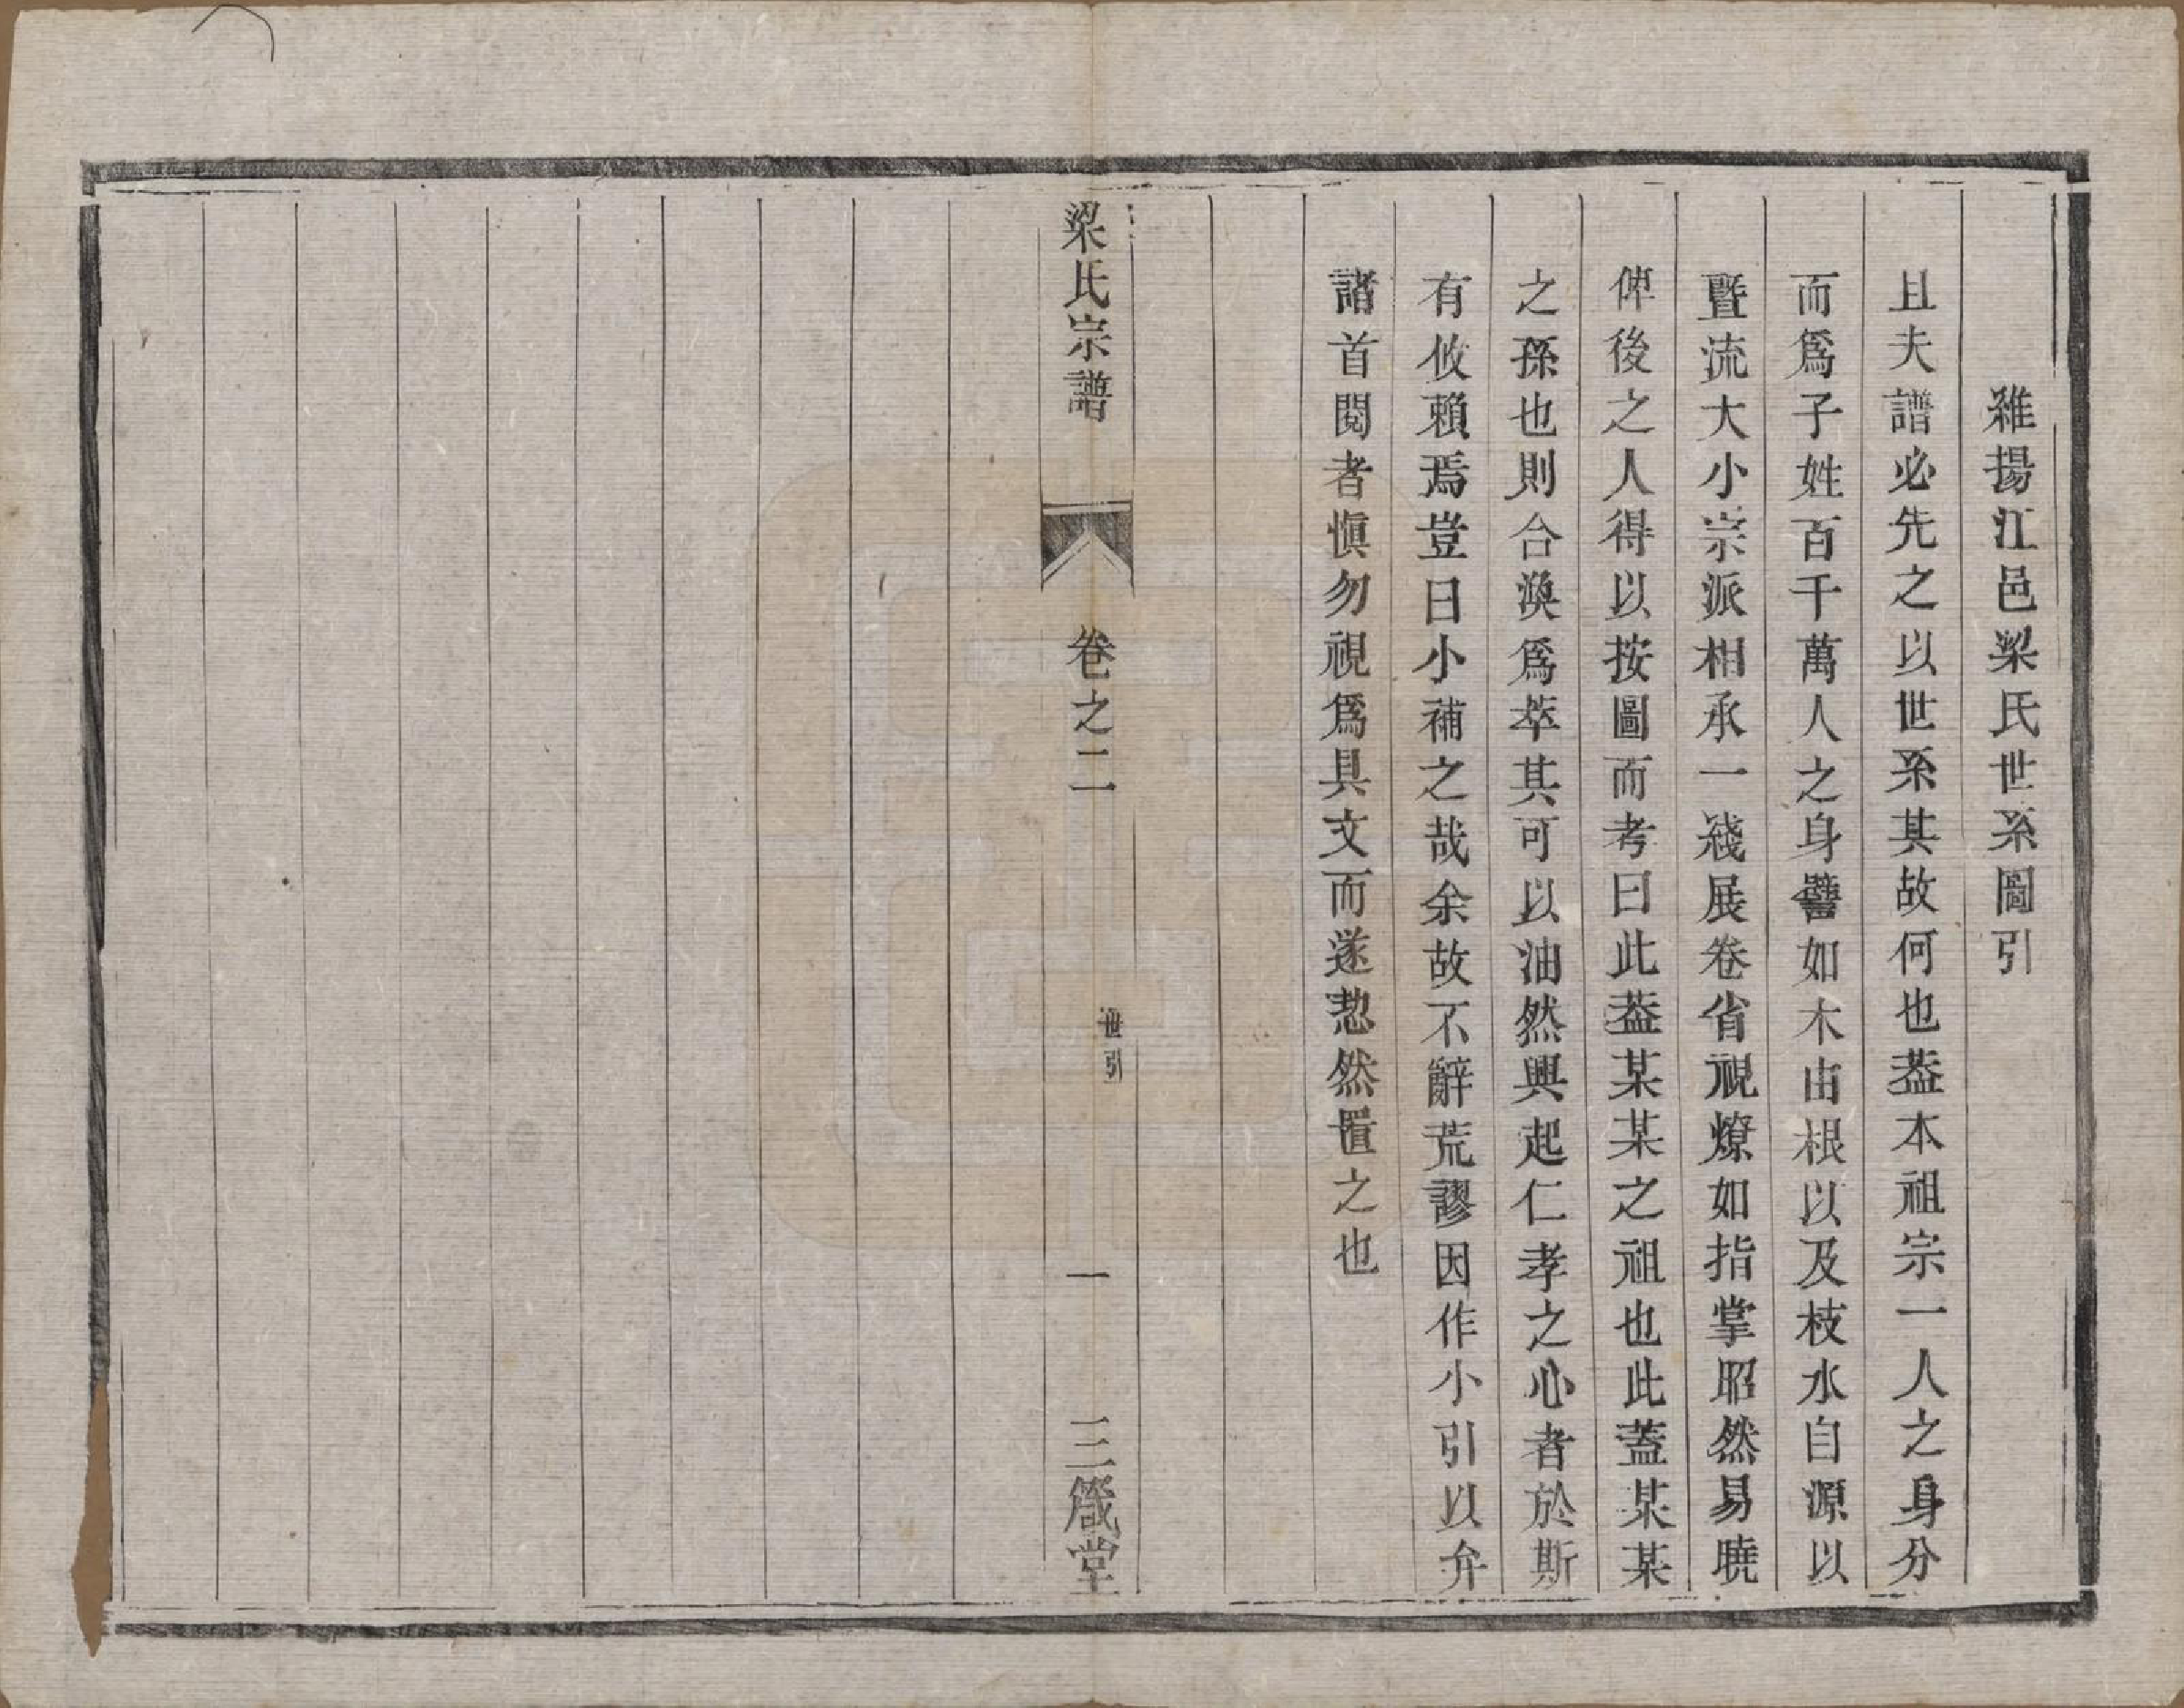 維揚江邑梁氏世系圖引
且夫譜必先之以世系其故何也葢本祖宗一人之身分
而爲子姓百千萬人之身譬如木由根以及枝水自源以
暨流大小宗派相承一綫展卷省視燎如指掌昭然易曉
俾後之人得以按圖而考曰此葢某某之祖也此蓋某某
之孫也則合渙爲萃其可以油然興起仁孝之心者於斯
有攸賴焉豈曰小補之哉余故不辭荒謬因作小引以弁
諸首閱者愼勿視爲具文而遂恝然置之也
梁氏宗譜
卷之二
世引
一
三箴堂